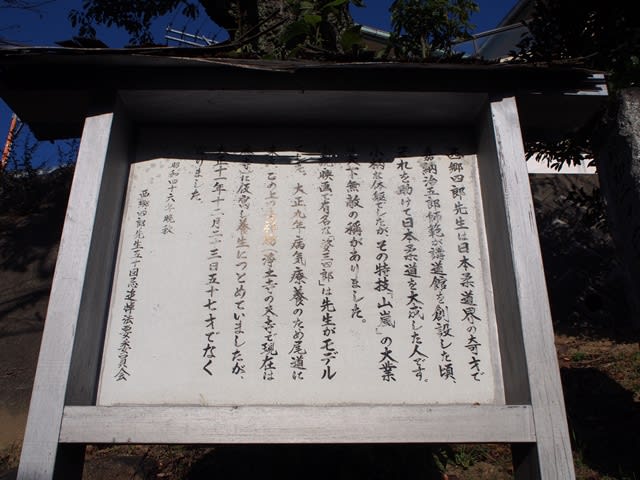 西郷四郎先生は日本柔道界の奇才で
嘉納治五郎師範が講道館を創設した頃、
それを助けて日本柔道を大成した人です。
小柄な体躯でしたが、その特技「山嵐」の大業
は天下無敵の称がありました。
映画で有名な「姿三四郎」は先生がモデル
です。大正九年病気療養のため尾道に
浄土寺の末寺で現在は
に仮寓し養生につとめていましたが、
十一年十二月二十三日五十七才でなく
なりました。
昭和四十六年晩秋
西郷四郎先生五十回忌追悼法要委員会